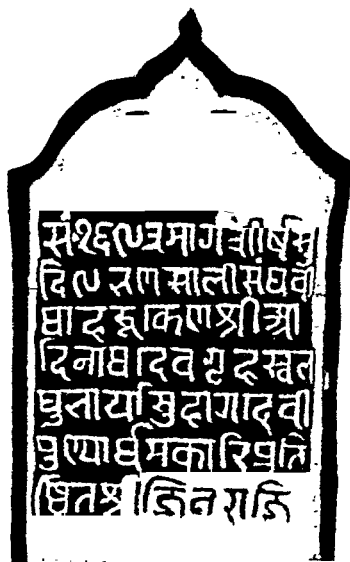 सं॰१६९३मार्गशीर्षसु
दि९भणसालीसंघवी
थाहरूकेणश्रीआ
दिनाथदेवगृहं स्वल
घुभार्यासुहागदेवी
पुण्यार्थमकारिप्रति
ष्ठितंश्रीजिनराजि